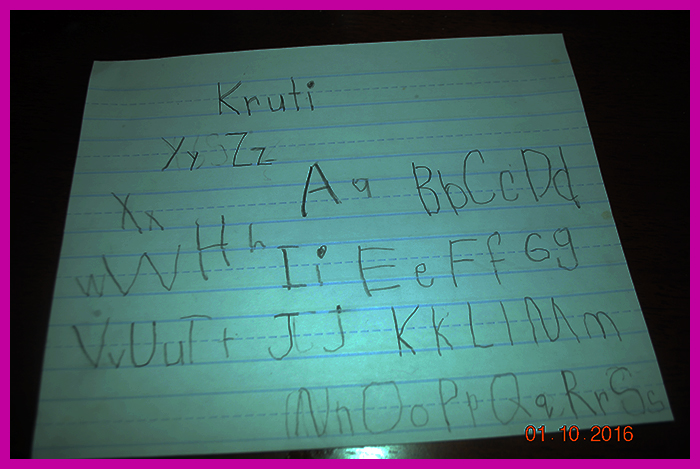 Kruti
Yy Zz
Xx Aa Bb Cc Dd
wW Hh Ii Ee Ff Gg
Vv Uu Tt Jj Kk Ll Mm
Nn Oo Pp Qq Rr Ss
01.10.2016